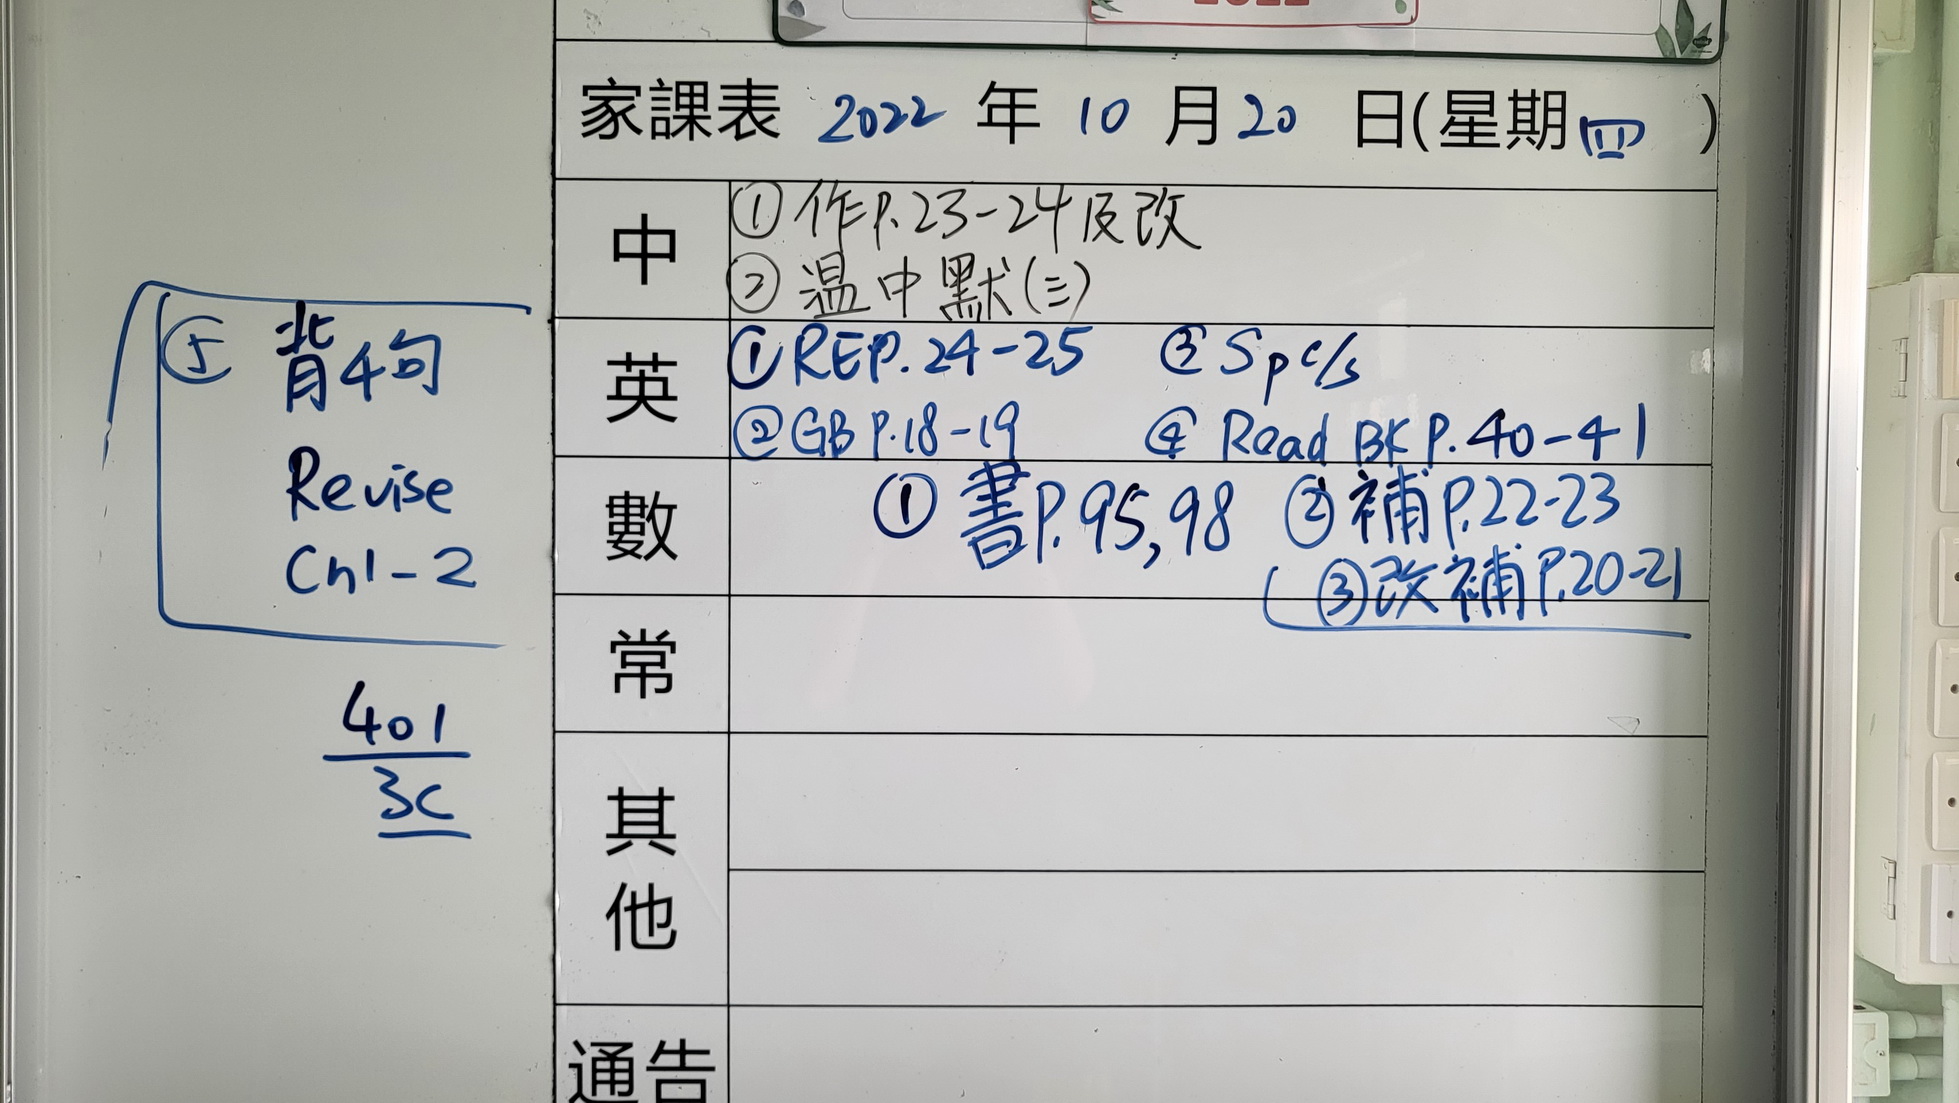 家課表 2022 年 10 月 20 日(星期四)
中
① 作P.23-24及改
② 溫中默(三)
英
① REP.24-25 ③ Sp c/s
② GB P.18-19 ④ Read BK P.40-41
⑤ 背4句
Revise
Ch1-2
數
① 書P.95,98 ② 補P.22-23
③改補P.20-21
常
401
3C
其他
通告